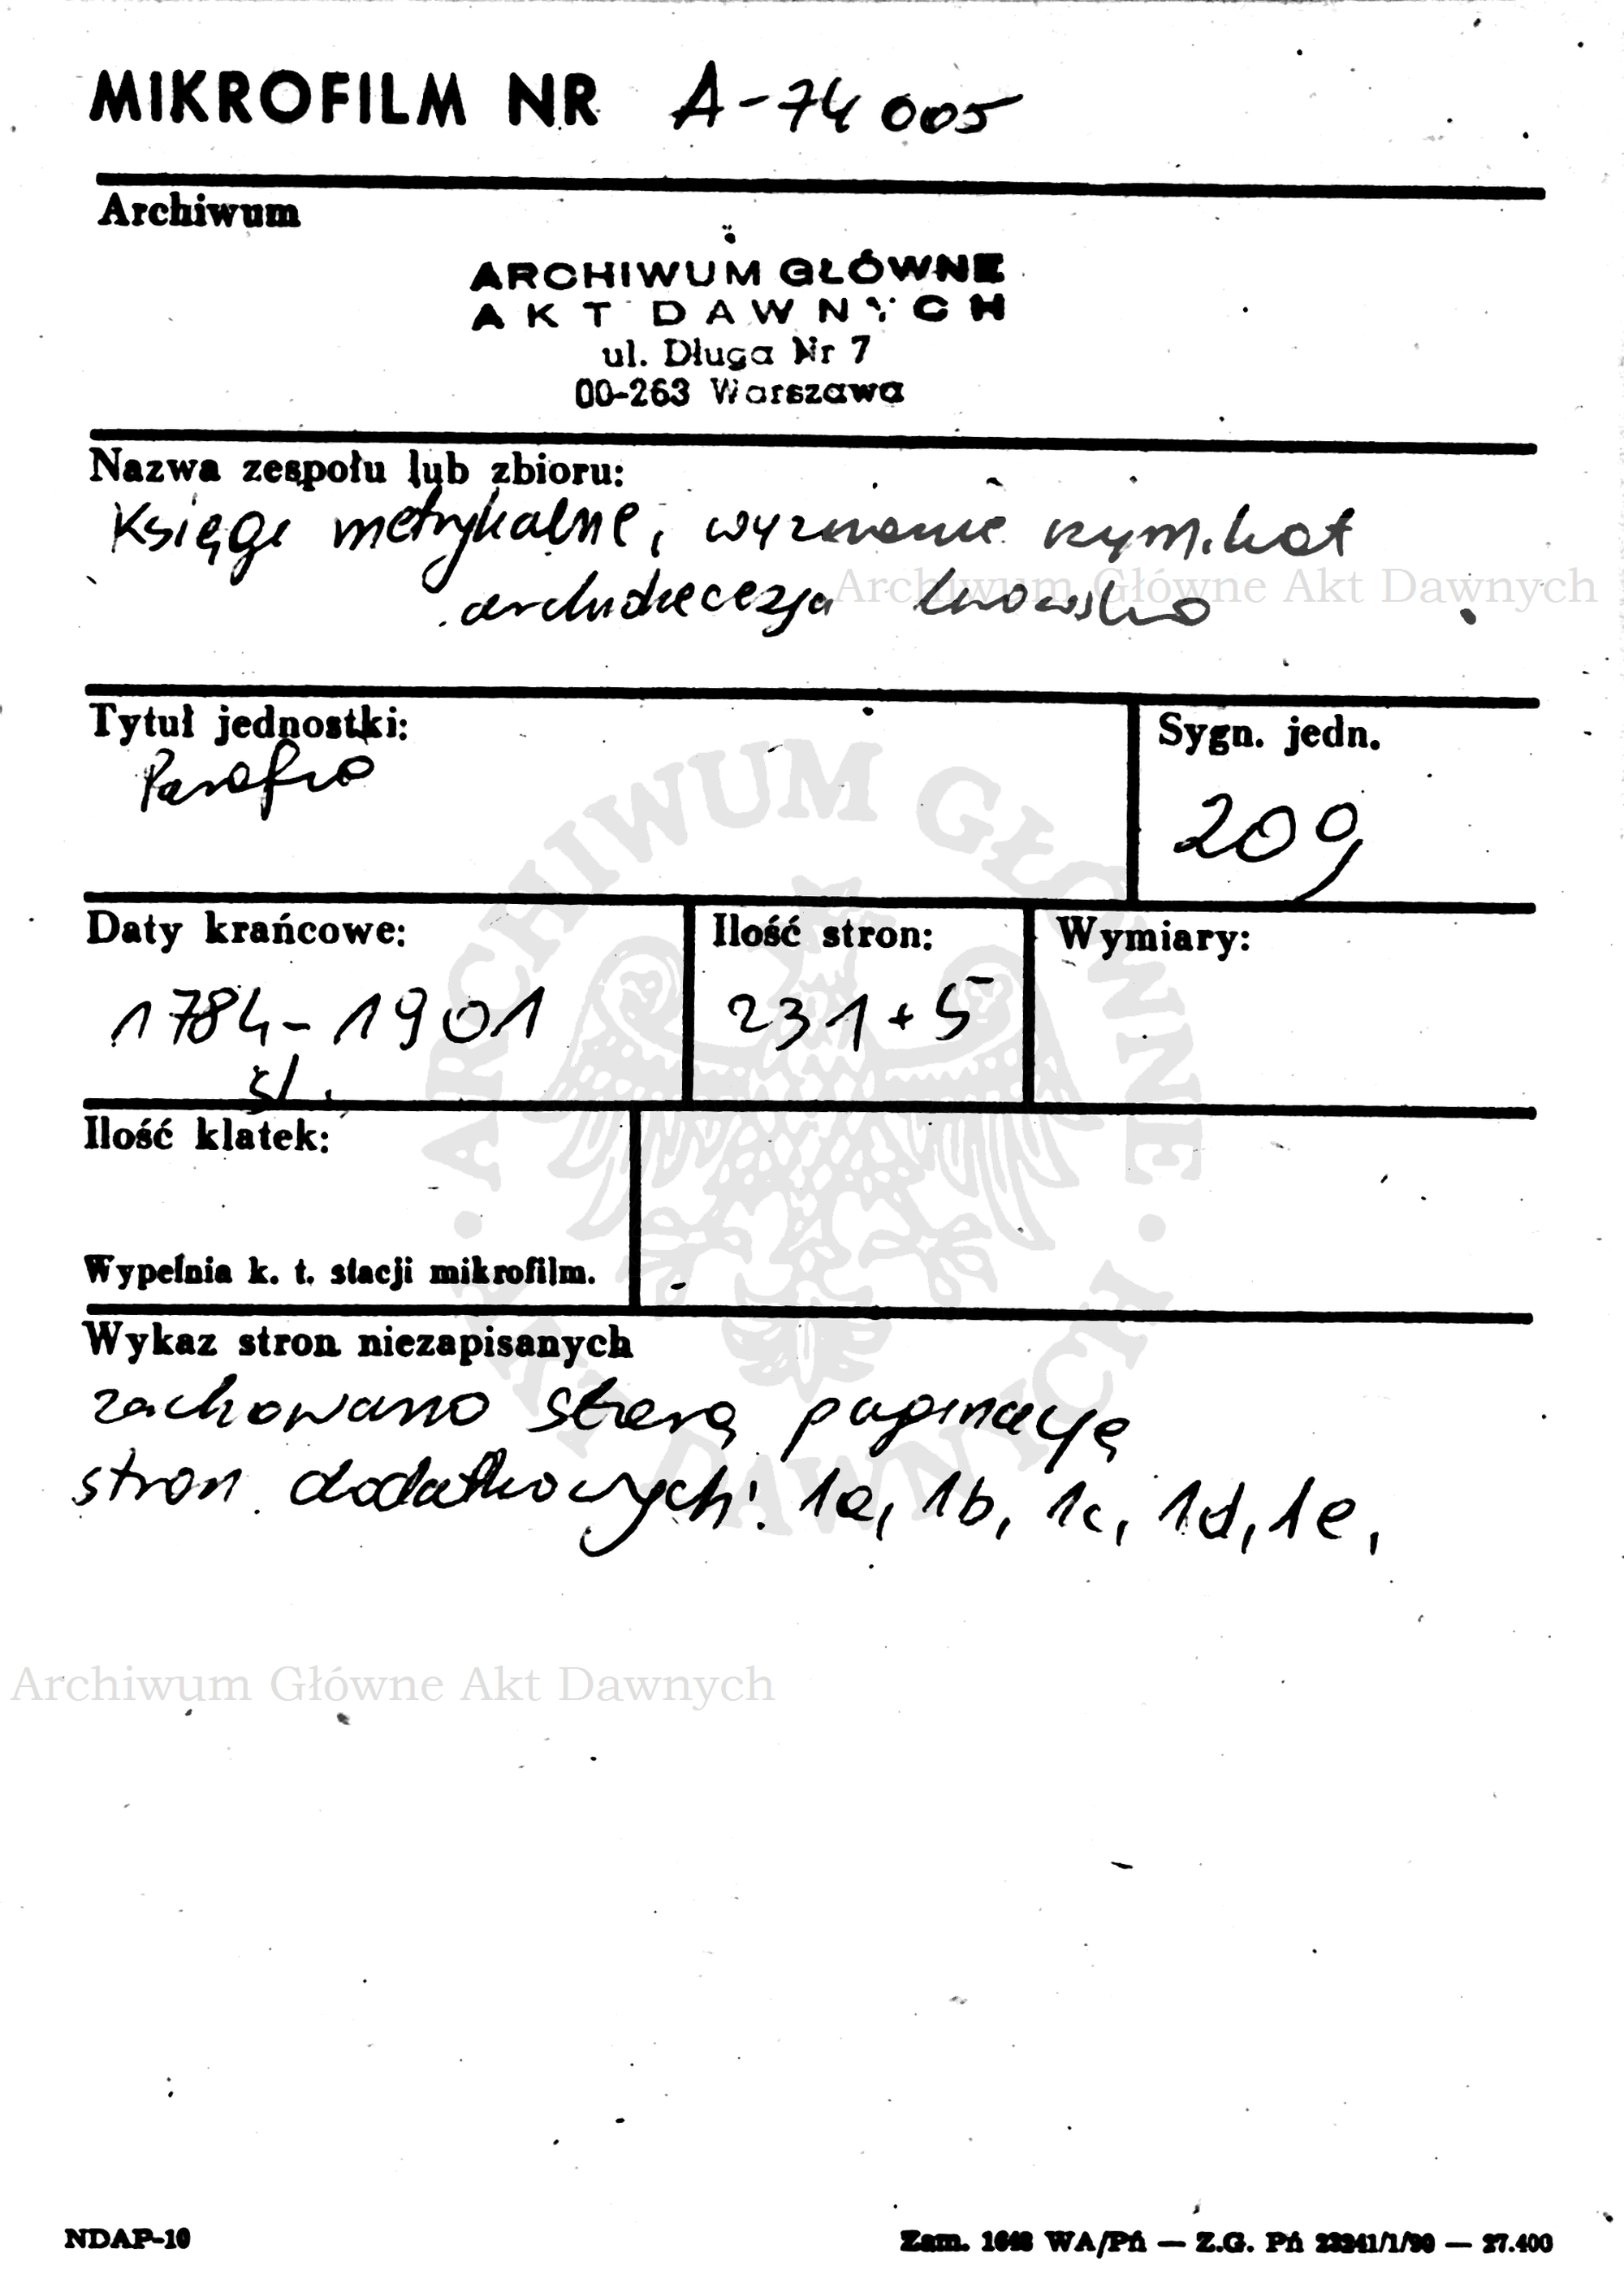 MIKROFILM NR A-74005
Archiwum
ARCHIWUM GŁÓWNE
AKT DAWNYCH
ul. Długa Nr 7
00-263 Warszawa
Nazwa zespołu lub zbioru:
Księgi metrykalne, wyznanie rzym.kat
archidiecezja lwowska
Archiwum Główne Akt Dawnych
Tytuł jednostki:
Parafia
Sygn. jedn.
209
Daty krańcowe:
1784-1901
Ilość stron:
231+5
Wymiary:
Ilość klatek:
Wypełnia k. t. stacji mikrofilm.
ARCHIWUM GŁÓWNE AKT DAWNYCH
Wykaz stron niezapisanych
zachowano starą paginację
stron dodatkowych: 1a, 1b, 1c, 1d, 1e,
Archiwum Główne Akt Dawnych
NDAP-10
Zam. WA/Pń — Z.G. Pń — 27.400